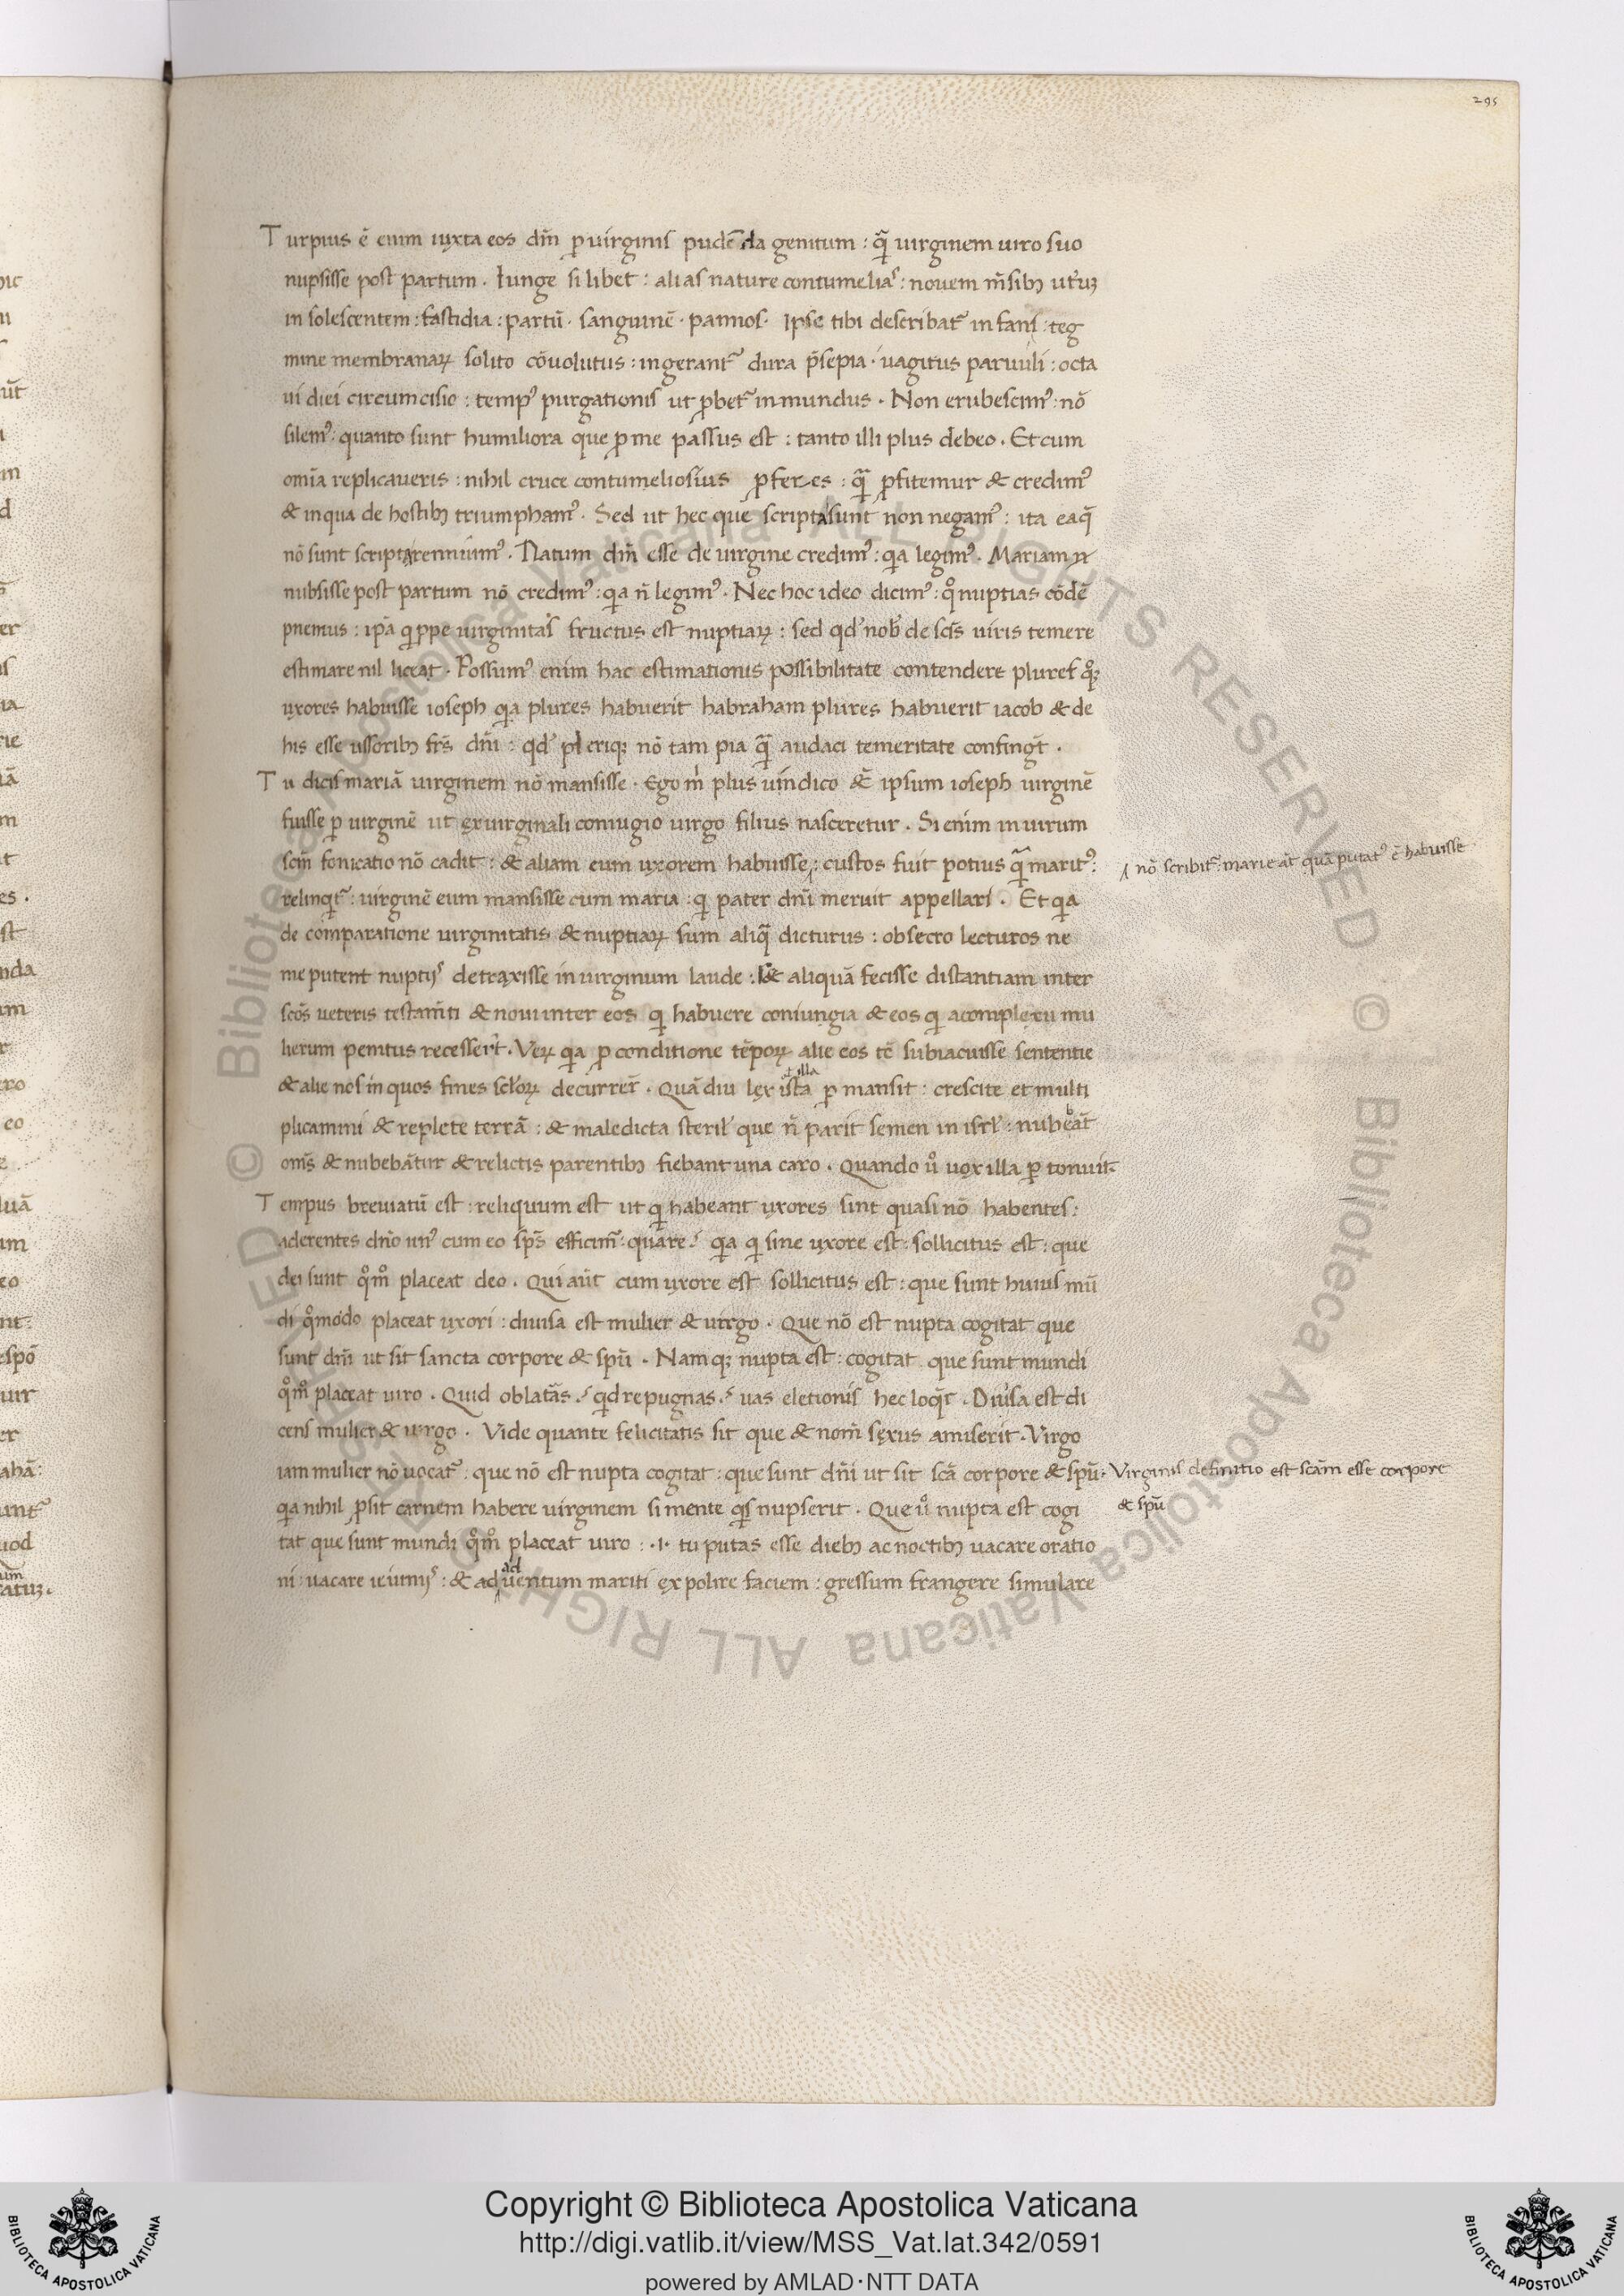 295
Turpius ē enim iuxta eos dm̄ p uirginis pudēda genitum : q̄ uirginem uiro suo
nupsisse post partum . Iunge si libet : alias nature contumelias : nouem m̄sib; ut'u;
insolescentem : fastidia : partū . sanguinē . pannos . Ipse tibi describat᷑ infans : teg
mine membranaꝝ solito cōuolutus : ingerant᷑ dura p̄sepia . uagitus paruuli : octa
ui diei circumcisio : temp᷒ purgationis ut ꝓbet᷑ inmundus . Non erubescim᷒ : nō
silem᷒ : quanto sunt humiliora que ꝓ me passus est : tanto illi plus debeo . Et cum
omīa replicaueris : nihil cruce contumeliosius ꝓferes : q̄ ꝓfitemur & credim᷒
& in qua de hostib; triumpham᷒ . Sed ut hec que scripta sunt non negam᷒ : ita ea q̄
nō sunt scripta rennuim᷒ . Natum dm̄ esse de uirgine credim᷒ : qia legim᷒ . Mariam
nubsisse post partum nō credim᷒ : qia n̄ legim᷒ . Nec hoc ideo dicim᷒ : qͦ nuptias cōdē
pnemus : ipā qippe uirginitas fructus est nuptiaꝝ : sed qd' nob' de scīs uiris temere
estimare nil liceat . Possum᷒ enim hac estimationis possibilitate contendere plures qͦq;
uxores habuisse ioseph qia plures habuerit habraham plures habuerit iacob & de
his esse ussorib; frs̄ dn̄i : qd' pleriq; nō tam pia q̄ audaci temeritate confingt̄ .
Tu dicis mariā uirginem nō mansisse . Ego m̄ plus uindico & ipsum ioseph uirginē
fuisse p uirginē ut ex uirginali coniugio uirgo filius nasceretur . Si enim in uirum
scm̄ fonicatio nō cadit : & aliam eum uxorem habuisse : custos fuit potius q̄ marit᷒ : nō scribit᷑ : marie at̄ quā putat᷒ ē habuisse
relinqt᷑ : uirginē eum mansisse cum maria : qi pater dn̄i meruit appellari . Et qia
de comparatione uirginitatis & nuptiaꝝ sum aliq̄ dicturus : obsecro lecturos ne
me putent nuptijs detraxisse in uirginum laude : & aliquā fecisse distantiam inter
scōs ueteris testam̄ti & noui inter eos qi habuere coniungia & eos qi a complexu mu
lierum penitus recesser̄t . Veꝝ qia ꝓ conditione tēpoꝝ alie eos tc̄ subiacuisse sententie
& alie nos in quos fines sclōꝝ decurrer̄ . Quā diu lex ista illa pmansit : crescite et multi
plicamini & replete terrā : & maledicta steril' que n̄ parit semen in isrl' : nubebāt
oms̄ & nubebātur & relictis parentib; fiebant una caro . Quando uͦ uox illa ptonuit
Tempus breuiatū est : reliquum est ut qi habeant uxores sint quasi nō habentes :
aderentes dn̄o un᷒ cum eo sps̄ efficim᷒ : quare ? qia qi sine uxore est : sollicitus est : que
dei sunt qͦmͦ placeat deo . Qui aūt cum uxore est sollicitus est : que sunt huius mū
di qͦmodo placeat uxori : diuisa est mulier & uirgo . Que nō est nupta cogitat que
sunt dn̄i ut sit sancta corpore & spū . Nam q; nupta est : cogitat que sunt mundi
qͦmͦ placeat uiro . Quid oblatr̄as ? qid repugnas ? uas eletionis hec loqt̄ . Diuisa est di
cens mulier & uirgo . Vide quante felicitatis sit que & nom̄ sexus amiserit . Virgo
iam mulier nō uocat᷑ : que nō est nupta cogitat : que sunt dn̄i ut sit scā corpore & spū : Virginis definitio est scām esse corpore
qia nihil ꝓsit carnem habere uirginem si mente qis nupserit . Que uͦ nupta est cogi & spū
tat que sunt mundi qͦmͦ placeat uiro : .i. tu putas esse dieb; ac noctib; uacare oratio
ni : uacare ieiunijs : & ad aduentum mariti expolire faciem : gressum frangere simulare
Copyright © Biblioteca Apostolica Vaticana
http://digi.vatlib.it/view/MSS_Vat.lat.342/0591
powered by AMLAD·NTT DATA